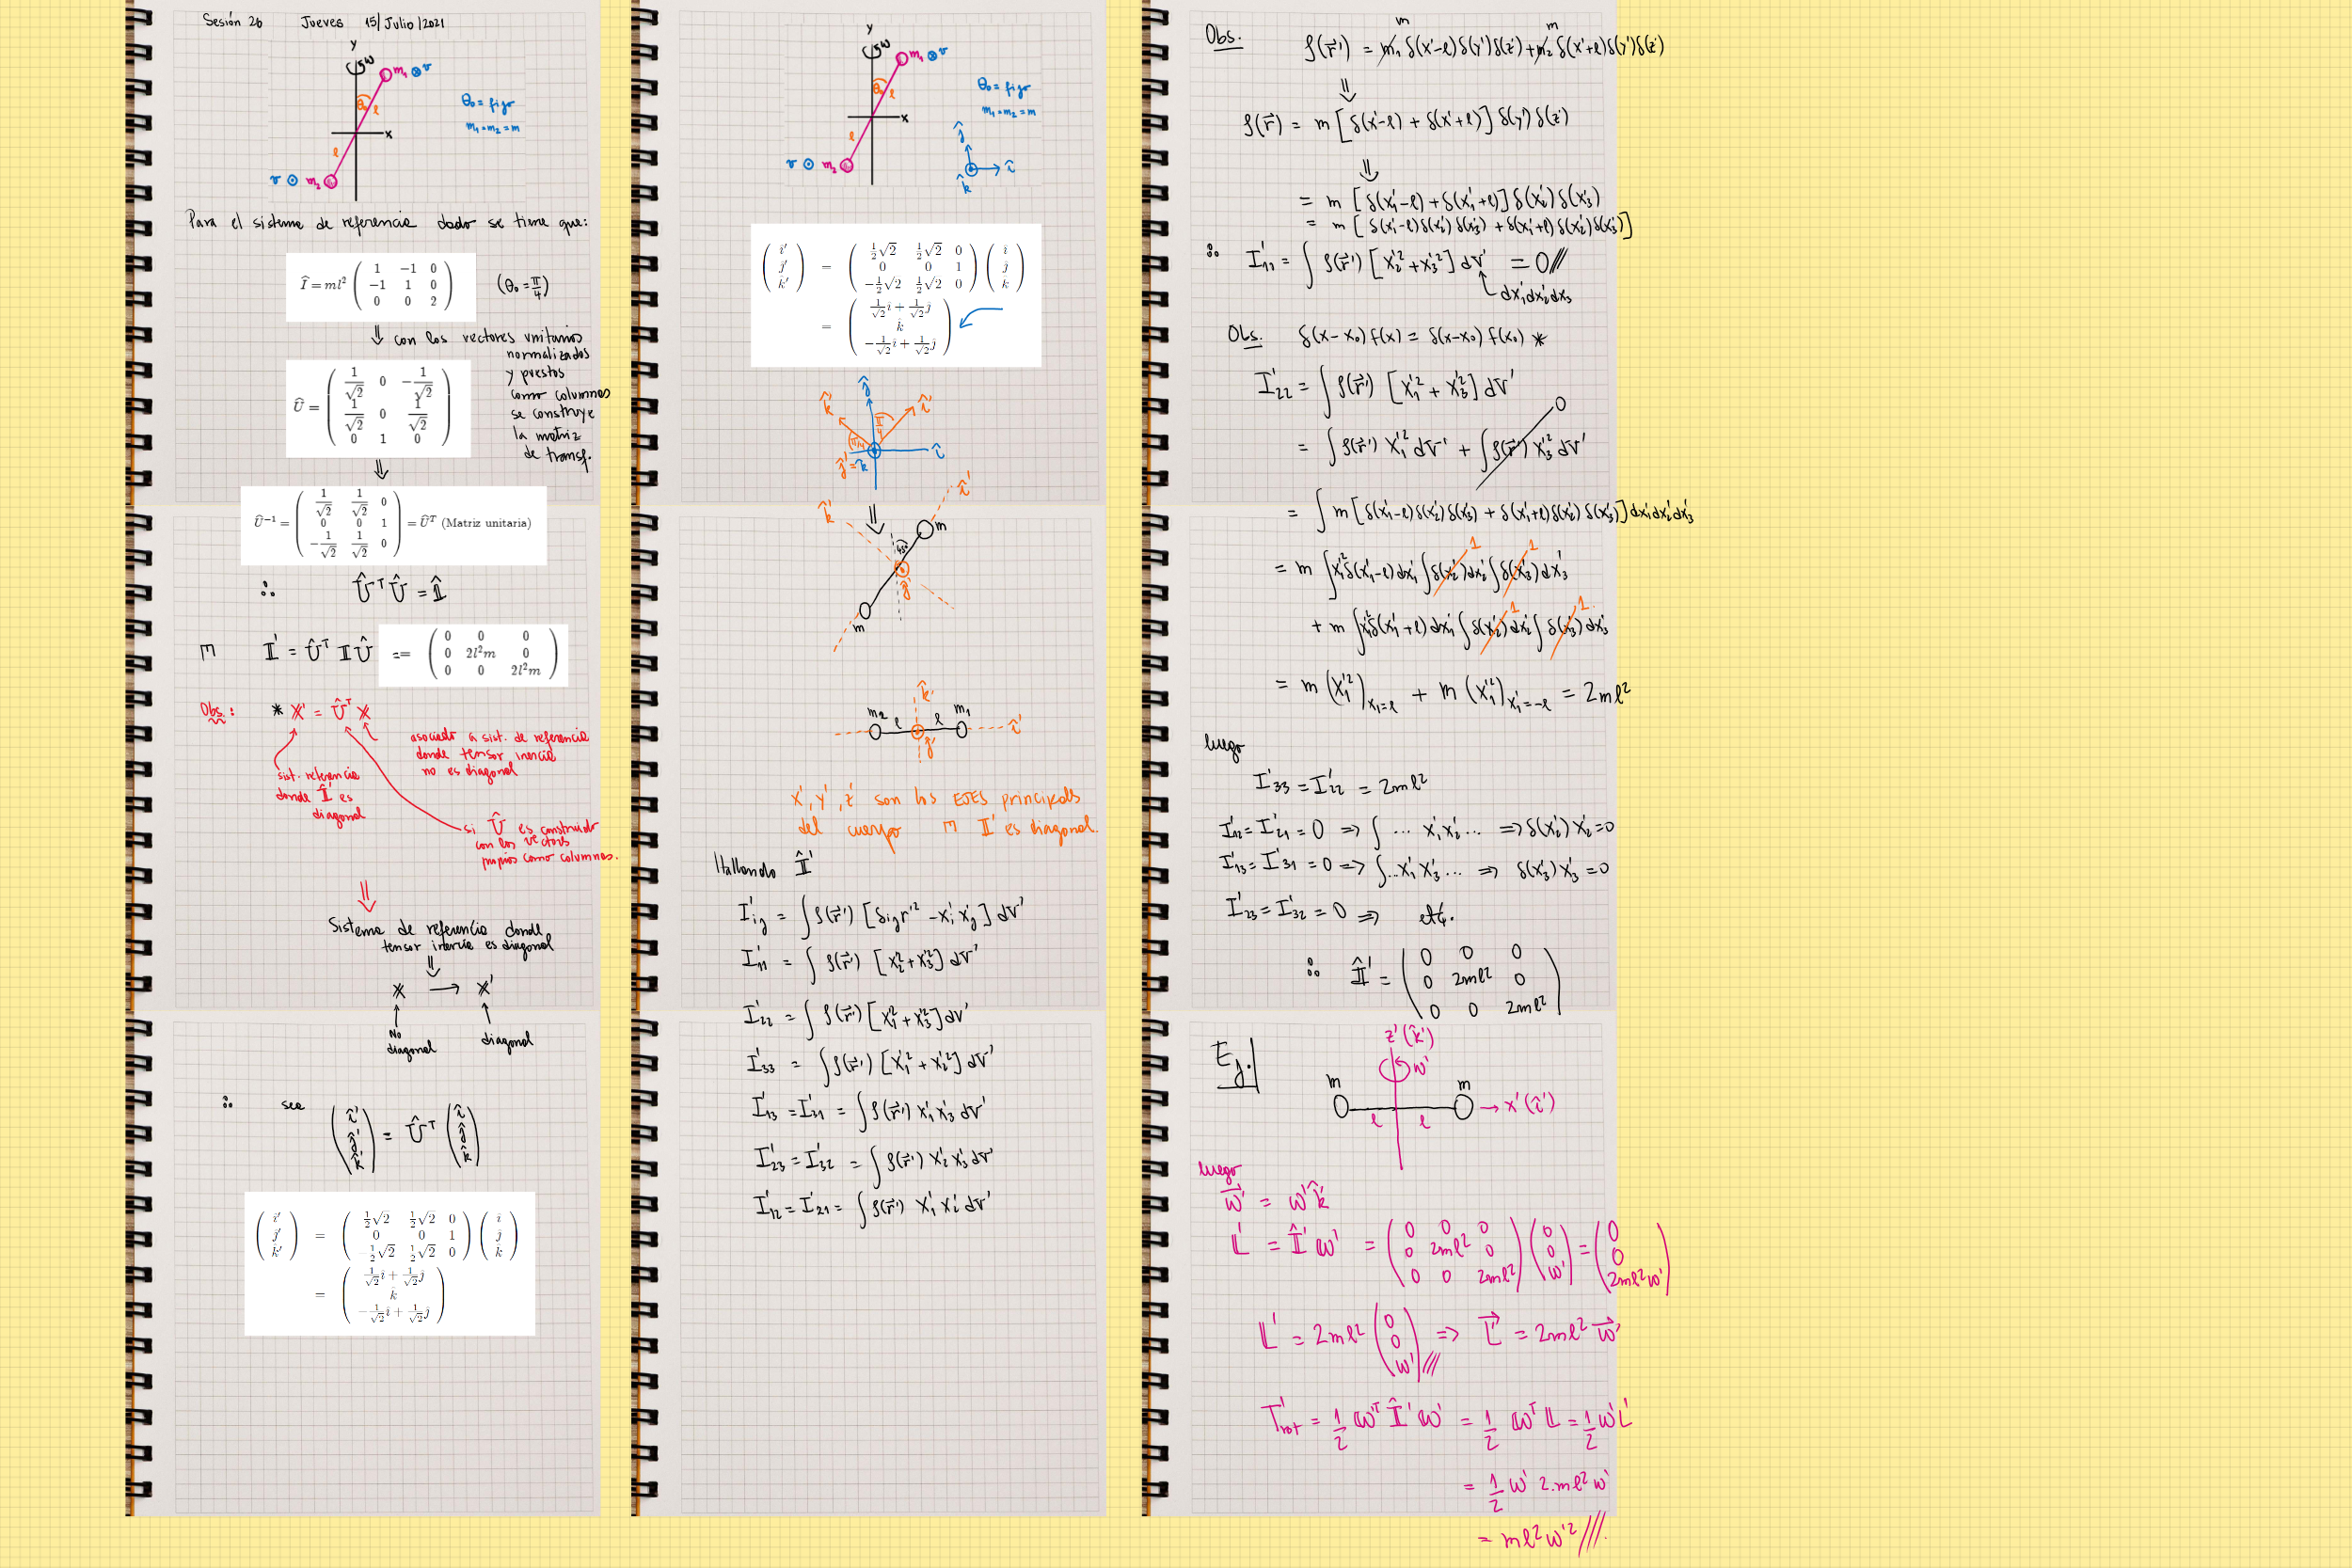 Sesión 26 Jueves 15/Julio/2021
y
ω
m₁ ⊗ v
θ₀ l
θ₀ = fijo
m₁ = m₂ = m
x
l
v ⊙ m₂
Para el sistema de referencia dado se tiene que:
Î = ml² ( 1 −1 0 ; −1 1 0 ; 0 0 2 ) (θ₀ = π/4)
⇓ con los vectores unitarios
normalizados
y puestos
como columnas
se construye
la matriz
de transf.
Û = ( 1/√2 0 −1/√2 ; 1/√2 0 1/√2 ; 0 1 0 )
⇓
Û⁻¹ = ( 1/√2 1/√2 0 ; 0 0 1 ; −1/√2 1/√2 0 ) = Ûᵀ (Matriz unitaria)
∴ Ûᵀ Û = 𝟙̂
𝕀' = Ûᵀ 𝕀 Û == ( 0 0 0 ; 0 2l²m 0 ; 0 0 2l²m )
Obs: * 𝕏' = Ûᵀ 𝕏
asociado a sist. de referencia
donde tensor inercia
no es diagonal
sist. referencia
donde 𝕀̂' es
diagonal
si Û es construido
con los vectores
propios como columnas.
⇓
Sistema de referencia donde
tensor inercia es diagonal
⇓
𝕏 → 𝕏'
No
diagonal
diagonal
∴ sea
( î' ; ĵ' ; k̂' ) = Ûᵀ ( î ; ĵ ; k̂ )
( î' ; ĵ' ; k̂' ) = ( ½√2 ½√2 0 ; 0 0 1 ; −½√2 ½√2 0 ) ( î ; ĵ ; k̂ )
= ( 1/√2 î + 1/√2 ĵ ; k̂ ; −1/√2 î + 1/√2 ĵ )
y
ω
m₁ ⊗ v
θ₀ l
θ₀ = fijo
m₁ = m₂ = m
x
l
v ⊙ m₂
ĵ
î
k̂
( î' ; ĵ' ; k̂' ) = ( ½√2 ½√2 0 ; 0 0 1 ; −½√2 ½√2 0 ) ( î ; ĵ ; k̂ )
= ( 1/√2 î + 1/√2 ĵ ; k̂ ; −1/√2 î + 1/√2 ĵ )
ĵ
k̂' î'
π/4
π/4
î
ĵ' = k̂
î'
k̂'
⇓
m
45°
ĵ'
m
k̂'
m₂ l l m₁
î'
ĵ'
x', y', z' son los EJES principales
del cuerpo 𝕀' es diagonal.
Hallando 𝕀̂'
I'ij = ∫ρ(r⃗') [δij r'² − x'i x'j] dv'
I'11 = ∫ρ(r⃗') [x'2² + x'3²] dv'
I'22 = ∫ρ(r⃗') [x'1² + x'3²] dv'
I'33 = ∫ρ(r⃗') [x'1² + x'2²] dv'
I'13 = I'31 = ∫ρ(r⃗') x'1 x'3 dv'
I'23 = I'32 = ∫ρ(r⃗') x'2 x'3 dv'
I'12 = I'21 = ∫ρ(r⃗') x'1 x'2 dv'
m m
Obs. ρ(r⃗') = m₁ δ(x'−l)δ(y')δ(z') + m₂ δ(x'+l)δ(y')δ(z')
⇓
ρ(r⃗) = m [δ(x'−l) + δ(x'+l)] δ(y') δ(z')
⇓
= m [δ(x'1−l) + δ(x'1+l)] δ(x'2) δ(x'3)
= m [δ(x'1−l)δ(x'2)δ(x'3) + δ(x'1+l)δ(x'2)δ(x'3)]
∴ I'11 = ∫ρ(r⃗') [x'2² + x'3²] dv' = 0
dx'1dx'2dx3
Obs. δ(x−x₀) f(x) = δ(x−x₀) f(x₀) *
I'22 = ∫ρ(r⃗') [x'1² + x'3²] dv'
0
= ∫ρ(r⃗') x'1² dv' + ∫ρ(r⃗') x'3² dv'
= ∫ m [δ(x'1−l)δ(x'2)δ(x'3) + δ(x'1+l)δ(x'2)δ(x'3)] dx'1dx'2dx'3
1 1
= m ∫x'1²δ(x'1−l)dx'1 ∫δ(x'2)dx'2 ∫δ(x'3)dx'3
1 1
+ m ∫x'1²δ(x'1+l)dx'1 ∫δ(x'2)dx'2 ∫δ(x'3)dx'3
= m (x'1²)x1=l + m (x'1²)x'1=−l = 2ml²
luego
I'33 = I'22 = 2ml²
I'12 = I'21 = 0 ⇒ ∫ ... x'1x'2 ... ⇒ δ(x'2) x'2 = 0
I'13 = I'31 = 0 ⇒ ∫ ... x'1x'3 ... ⇒ δ(x'3) x'3 = 0
I'23 = I'32 = 0 ⇒ etc.
∴ 𝕀̂' = ( 0 0 0 ; 0 2ml² 0 ; 0 0 2ml² )
Ej.
z'(k̂')
ω'
m m
→ x'(î')
l l
luego
ω⃗' = ω' k̂'
𝕃' = 𝕀̂' ω' = ( 0 0 0 ; 0 2ml² 0 ; 0 0 2ml² ) ( 0 ; 0 ; ω' ) = ( 0 ; 0 ; 2ml²ω' )
𝕃' = 2ml² ( 0 ; 0 ; ω' ) ⇒ L⃗' = 2ml² ω⃗'
T'rot = ½ ω'ᵀ 𝕀̂' ω' = ½ ωᵀ 𝕃 = ½ ω' L'
= ½ ω' 2.ml² ω'
= ml² ω'²